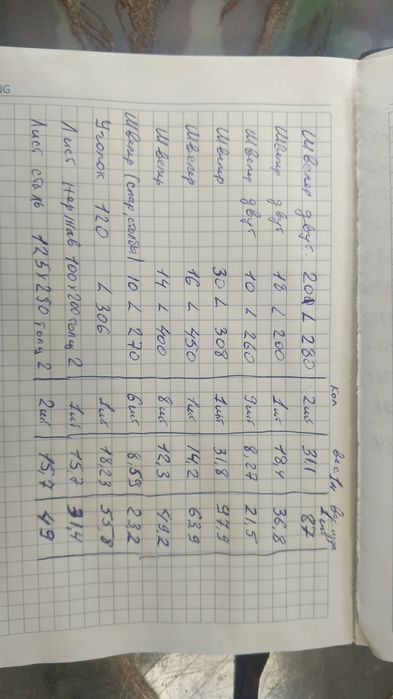 кол вес 1м вес изд 1шт
Швелер двут 20 L 280 2шт 31,1 87
Швелер двут 18 L 200 1шт 18,4 36,8
Швелер двут 10 L 260 9шт 8,27 21,5
Швелер 30 L 308 1шт 31,8 97,9
Швелер 16 L 450 1шт 14,2 63,9
Швелер 14 L 400 8шт 12,3 49,2
Швелер (спар, столбы) 10 L 270 6шт 8,59 23,2
Уголок 120 L 306 1шт 18,23 55,8
Лист нержав 100х200 толщ 2 1шт 15,7 31,4
Лист сталь 125х250 толщ 2 2шт 15,7 49